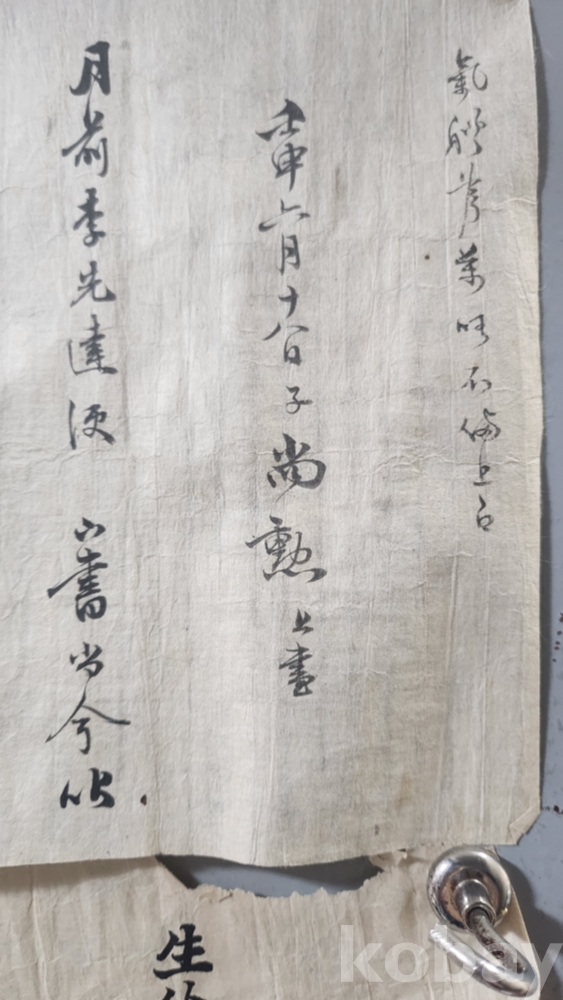 氣體 萬 不備上白
壬申六月十八日子尚勳上書
月前李先達便 下書尚今
生
kobay